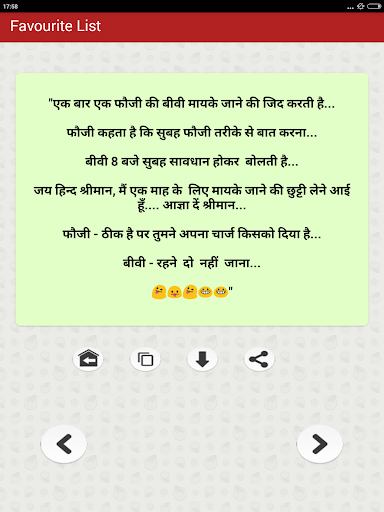 17:58
Favourite List
"एक बार एक फौजी की बीवी मायके जाने की जिद करती है...
फौजी कहता है कि सुबह फौजी तरीके से बात करना...
बीवी 8 बजे सुबह सावधान होकर बोलती है...
जय हिन्द श्रीमान, मैं एक माह के लिए मायके जाने की छुट्टी लेने आई
हूँ.... आज्ञा दें श्रीमान...
फौजी - ठीक है पर तुमने अपना चार्ज किसको दिया है...
बीवी - रहने दो नहीं जाना...
😜😛😜😂😂"